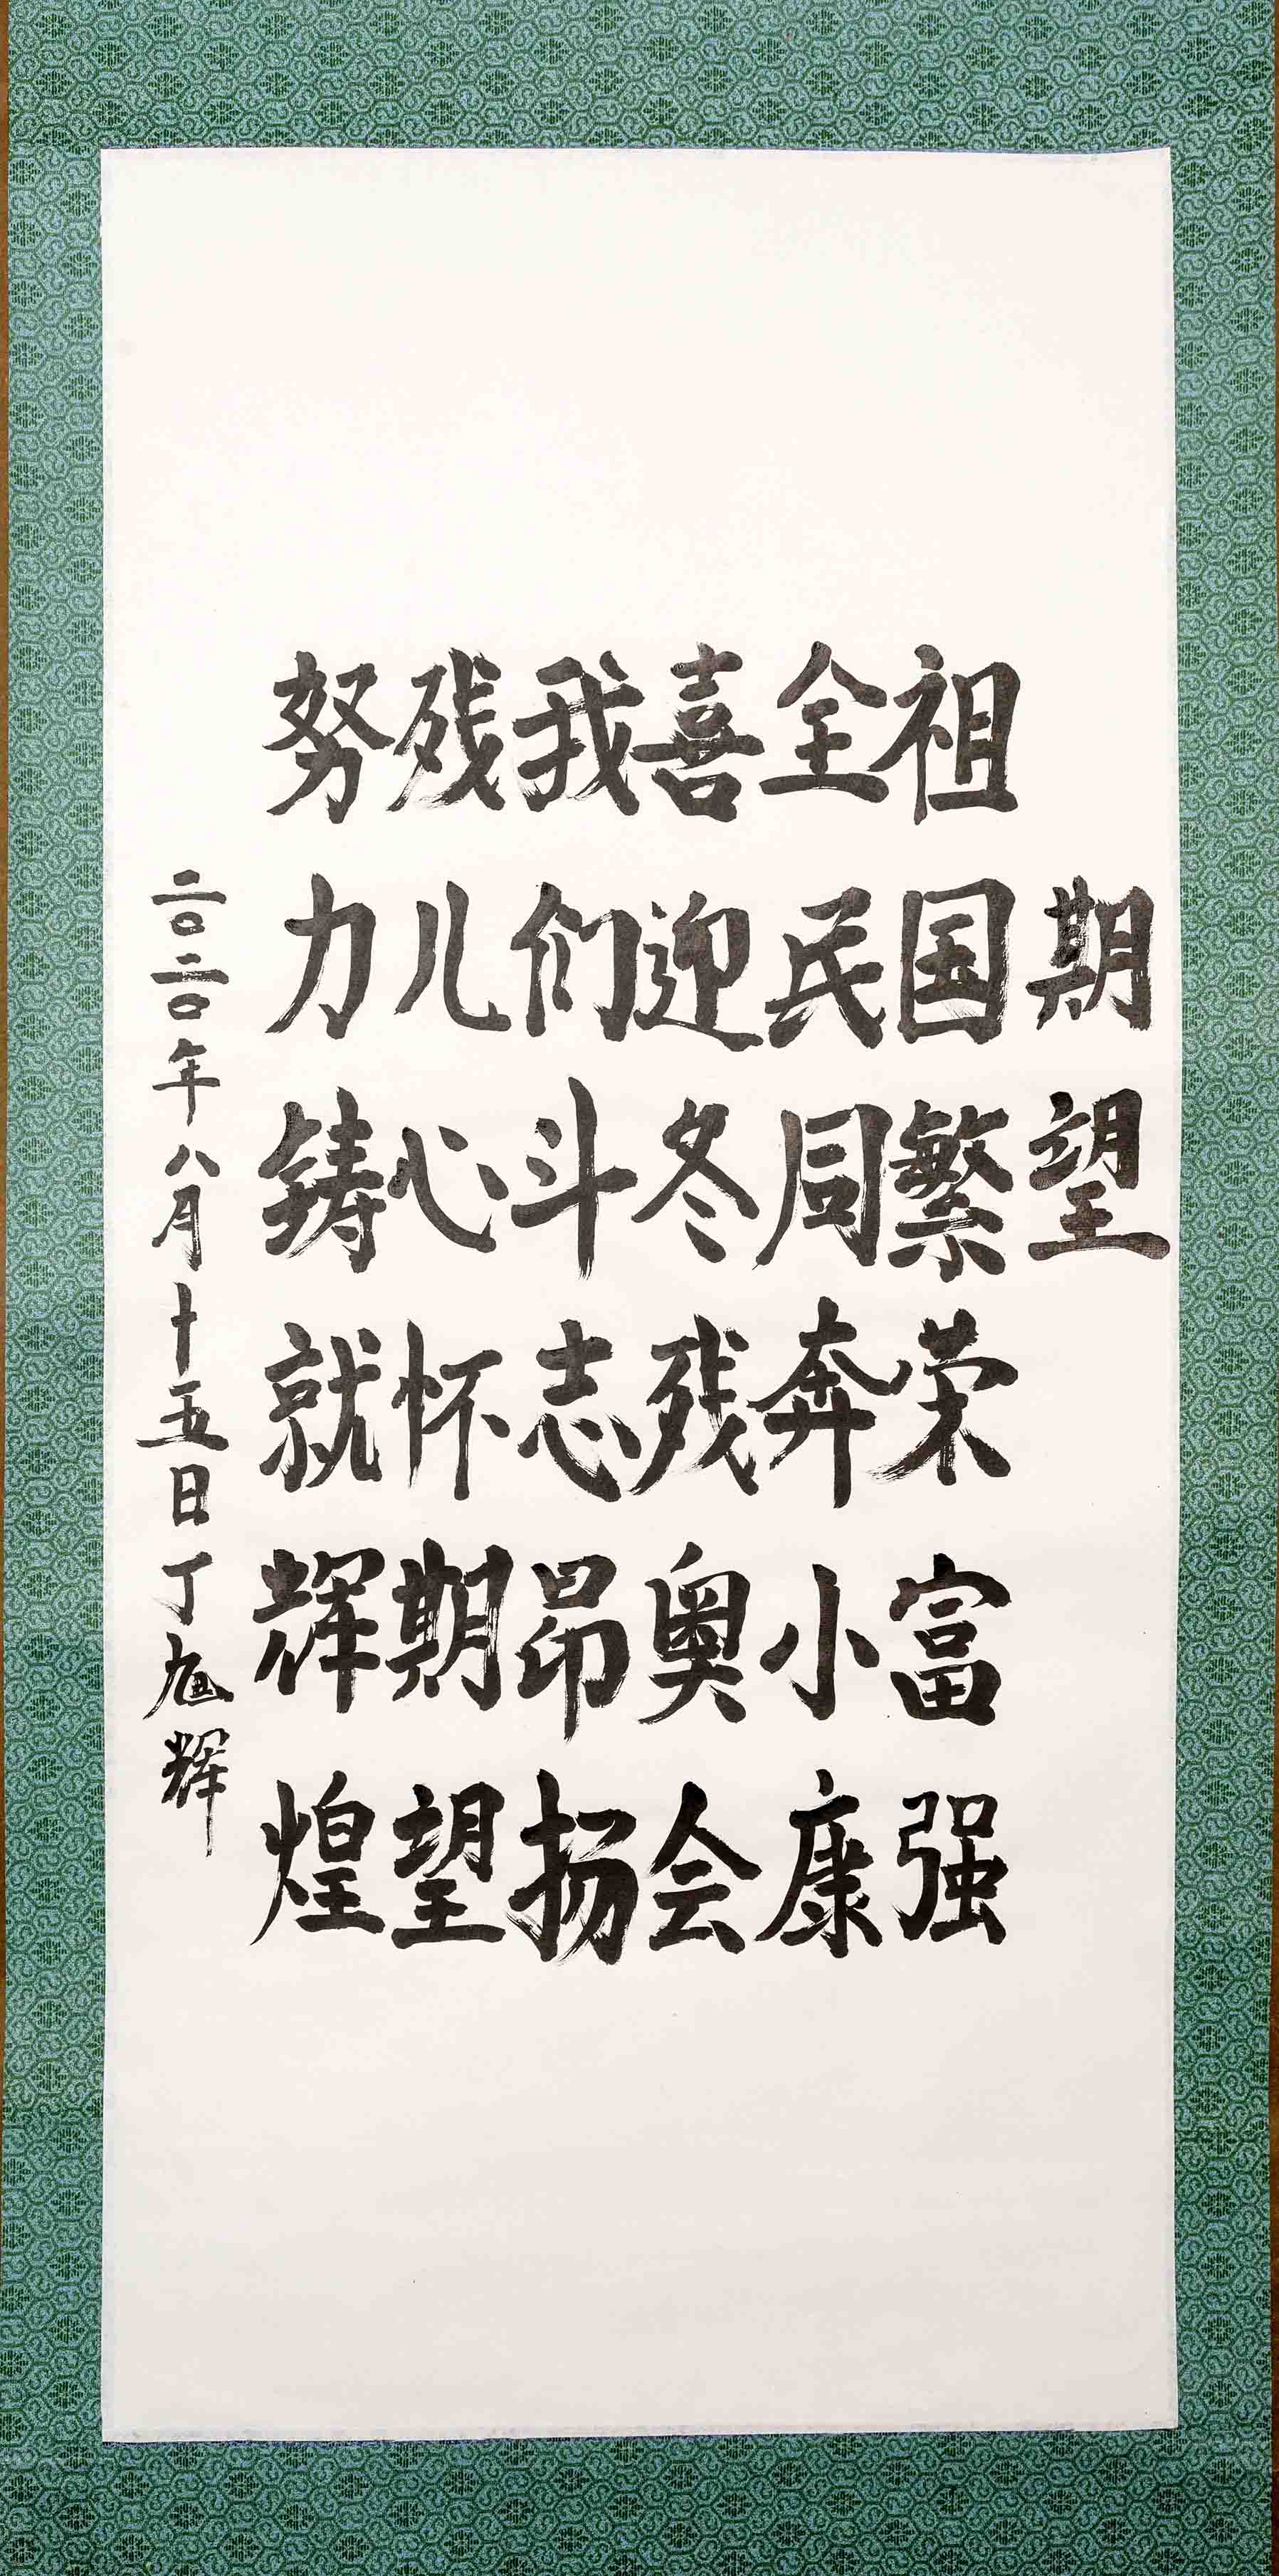 期望
祖国繁荣富强
全民同奔小康
喜迎冬残奥会
我们斗志昂扬
残儿心怀期望
努力铸就辉煌
二〇二〇年八月十五日丁旭辉